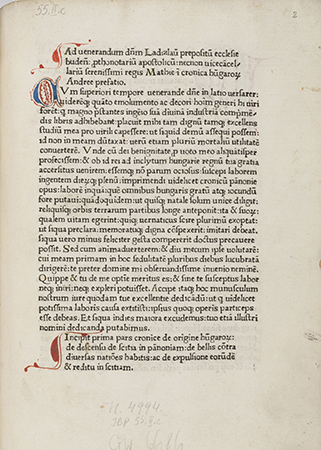 55.II.c
2
AD venerandum dñm Ladislaū prepositū ecclesie
budeñ: ꝓthonotariū apostolicū: necnon vicecācel-
lariū serenissimi regis Mathie: ī cronica hūgaroꝝ
Andree prefatio.
QUum superiori tempore venerande dñe in latio versarer:
viderēqꝫ quāto emolumento ac decori hoīm generi hi viri
forēt: q̄ magno p̄stantes ingēio sua diuina industria compēdi-
dis libris adhibebant: placuit mihi tam dignū tamqꝫ excellens
studiū mea pro virili capessere: ut siquid demū assequi possem:
id non in meam dūtaxat: uerū etiam pluriū mortaliū utilitatē
conuerterē. Vnde cū dei benignitate, ꝓ uoto meo aliquātisper
profecissem: & ob id rei ad inclytum hungarie regnū tua gratia
accersitus uenirem: essemqꝫ nō parum ociosus: suscepi laborem
ingentem
imprimendi videlicet cronicā pānonie
opus: laborē inquā: quē omnibus hungaris gratū atqꝫ iocundū
fore putaui: quādoquidem ut quisqꝫ natale solum unice diligit:
reliquisqꝫ orbis terrarum partibus longe anteponit: ita & suoꝝ
qualem uitam egerint: quiqꝫ natura scire plurimū exoptat:
ut siqua preclara: memoratuqꝫ digna cōspexerint: imitari debeat.
siqua uero minus feliciter gesta comperierit doctus precauere
possit. Sed cum animaduerterem: & diu mecum ipse uolutarē:
cui meam primam in hoc sedulitatē pluribus diebus lucubratā
dirigerē: te preter domine mi obseruandissime inuenio neminē.
Quippe & tu de me optīe meritus es: & sine te susceptus labor
neqꝫ iniri: neqꝫ expleri potuisset. Accipe itaqꝫ hoc munusculum
nostrum iure quodam tue excellentie dedicādū: ut q̄ uidelicet
potissima laboris causa extitisti: ipsius quoqꝫ operis particeps
esse debeas. Et siqua indies maiora excudemus: tuo etiā illustri
nomini dedicanda putabimus.
INcipit prima pars cronice de origine hūgaroꝝ:
de descensu de scitia in pānoniam: de bellis cōtra
diuersas natiōes habitis: ac de expulsione eorūdē
& reditu in scitiam.
H. 4994.